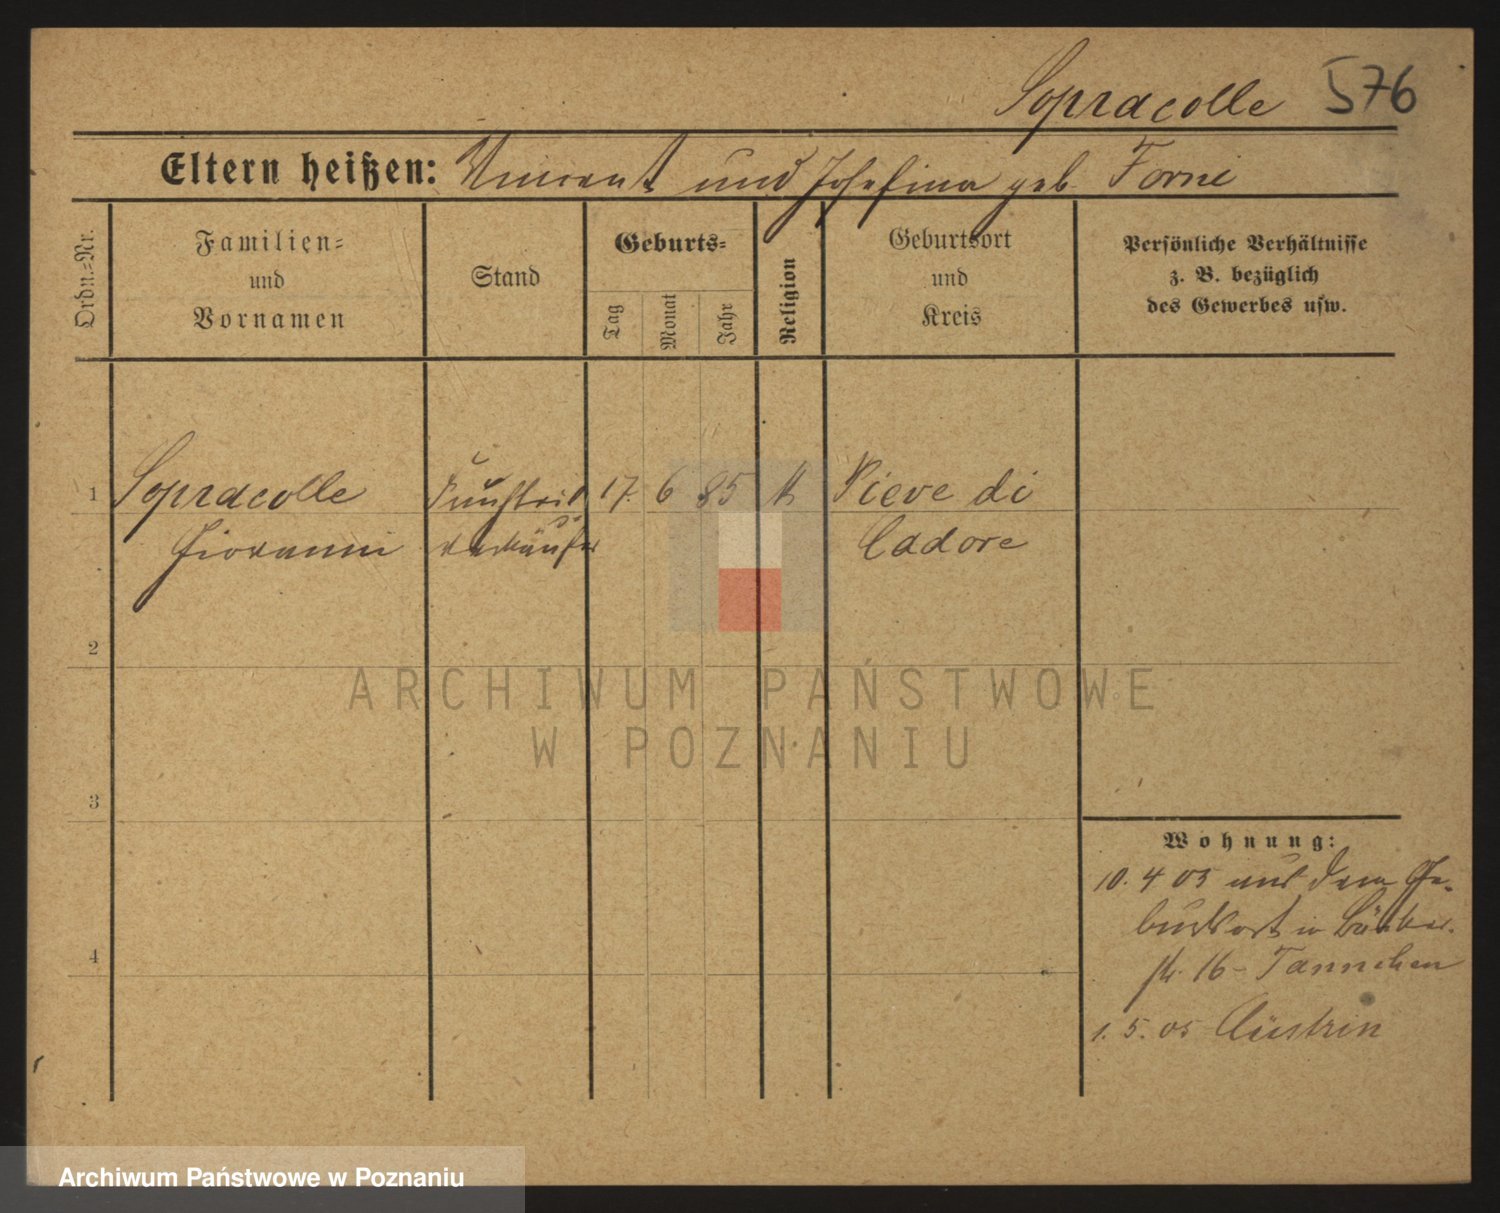 Sopracolle 576
Eltern heißen: Vincent und Josefina geb. Forni
Ordn.=Nr.
Familien=
und
Vornamen
Stand
Geburts=
Tag
Monat
Jahr
Religion
Geburtsort
und
Kreis
Persönliche Verhältnisse
z. B. bezüglich
des Gewerbes usw.
1 Sopracolle 17. 6 85 k Pieve di
Giovanni verkäufer Cadore
2
3
4
Wohnung:
10. 4 05 aus dem Ge-
burtsort in
str. 16 - Tannchen
1. 5. 05 Cüstrin
ARCHIWUM PAŃSTWOWE
W POZNANIU
Archiwum Państwowe w Poznaniu